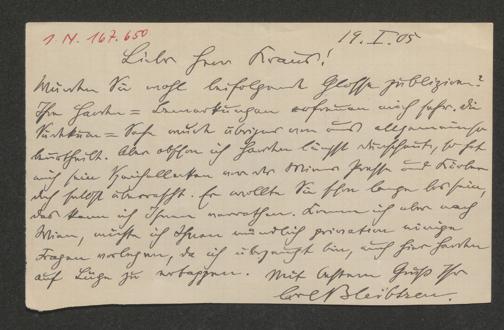 I. N. 167.650
19. I. 05
Lieber Herr Kraus!
Würden Sie wohl beifolgende Glosse publiziren?
Ihre Harden = Bemerkungen erfreuen mich sehr. Die
= Sache wird übrigens von uns allgemein
. Aber obschon ich Harden längst durchschaut, so hat
mich sein vor der Wiener Presse und
doch selbst überrascht. Er wollte Sie schon lange los sein,
das kann ich Ihnen verrathen. Komm ich aber nach
Wien, möchte ich Ihnen mündlich privatim einige
Fragen vorlegen, da ich überzeugt bin, auch hier Harden
auf Lüge zu ertappen. Mit bestem Gruß Ihr
Carl Bleibtreu.